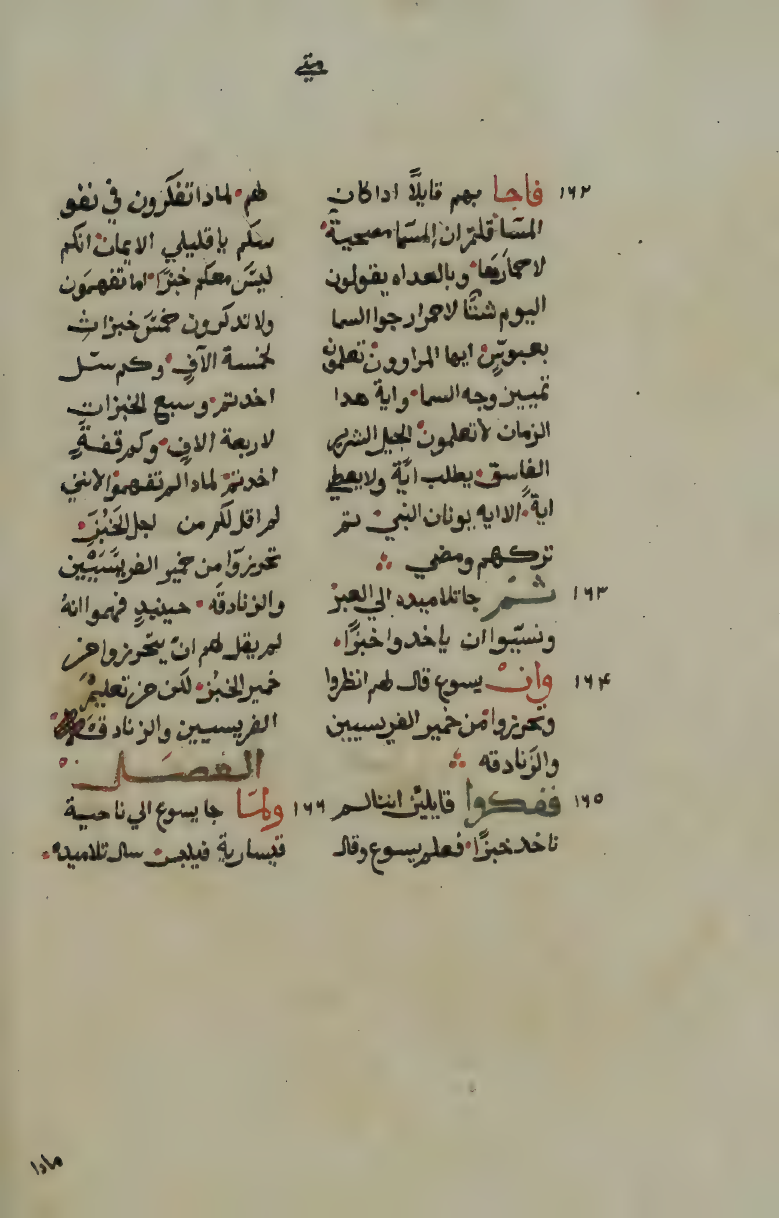 متي
١٦٢ فاجابهم قايلاً اداكان
المسا قلتم ان السما مصحية
لاحمارها وبالغداه يقولون
اليوم شتا لاحمرار جوا السما
بعبوس ايها المراوون تعلمون
تمييز وجه السما واية هدا
الزمان لا تعلمون الجيل الشرير
الفاسق يطلب اية ولا يعطي
اية الا ايه يونان النبي تم
تركهم ومضي
١٦٣ ثم جا تلاميده الي العبر
ونسيوا ان ياخدوا خبزا
١٦٤ وان يسوع قال لهم انظروا
وتحرزوا من خمير الفريسيين
والزنادقه
١٦٥ ففكروا قايلين اننا لم
ناخد خبزا فعلم يسوع وقال
لهم لمادا تفكرون في نفو
سكم يا قليلي الايمان انكم
ليس معكم خبزا اما تفهمون
ولا تدكرون خمس خبزات
لخمسة الآف وكم سل
اخدتم وسبع الخبزات
لاربعة الاف وكم قفة
اخدتم لمادا لم تفهموا لانني
لم اقل لكم من اجل الخبز
تحرزوا من خمير الفريسيين
والزنادقه حينيدٍ فهموا انهُ
لم يقل لهم ان يتحرزوا من
خمير الخبز لكن من تعليم
الفريسيين والزنادقة
الفصل
١٦٦ ولما جا يسوع الي ناحية
قيسارية فيلبس سال تلاميده
مادا